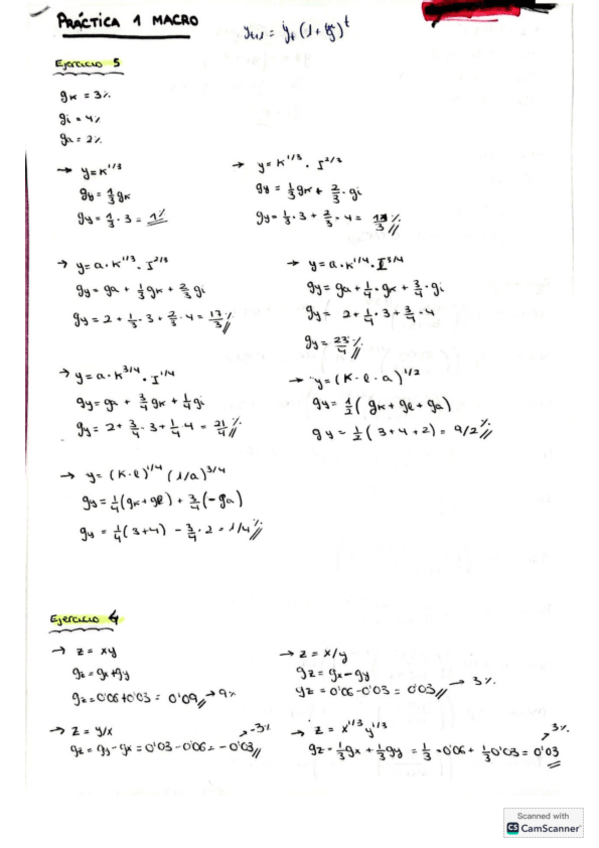 PRÁCTICA 1 MACRO
Ejercicio 5
gk = 3%
gi = 4%
ga = 2%
→ y = k^1/3
gy = 1/3 gk
gy = 1/3 · 3 = 1%
→ y = k^1/3 · I^2/3
gy = 1/3 gk + 2/3 · gi
gy = 1/3 · 3 + 2/3 · 4 =
→ y = a · k^1/3 · I^2/3
gy = ga + 1/3 gk + 2/3 gi
gy = 2 + 1/3 · 3 + 2/3 · 4 = 17/3 %
→ y = a · k^1/4 · I^3/4
gy = ga + 1/4 · gk + 3/4 · gi
gy = 2 + 1/4 · 3 + 3/4 · 4
gy = 23/4 %
→ y = a · k^3/4 · I^1/4
gy = ga + 3/4 gk + 1/4 gi
gy = 2 + 3/4 · 3 + 1/4 · 4 = 21/4 %
→ y = (k · l · a)^1/2
gy = 1/2 (gk + gl + ga)
gy = 1/2 (3 + 4 + 2) = 9/2 %
→ y = (k · l)^1/4 (1/a)^3/4
gy = 1/4 (gk + gl) + 3/4 (-ga)
gy = 1/4 (3 + 4) - 3/4 · 2 = 1/4 %
Ejercicio 4
→ z = xy
gz = gx + gy
gz = 0'06 + 0'03 = 0'09 → 9%
→ z = x/y
gz = gx - gy
yz = 0'06 - 0'03 = 0'03 → 3%
→ z = y/x
gz = gy - gx = 0'03 - 0'06 = - 0'03 → -3%
→ z = x^1/3 y^1/3
gz = 1/3 gx + 1/3 gy = 1/3 · 0'06 + 1/3 0'03 = 0'03 → 3%
Scanned with
CS CamScanner